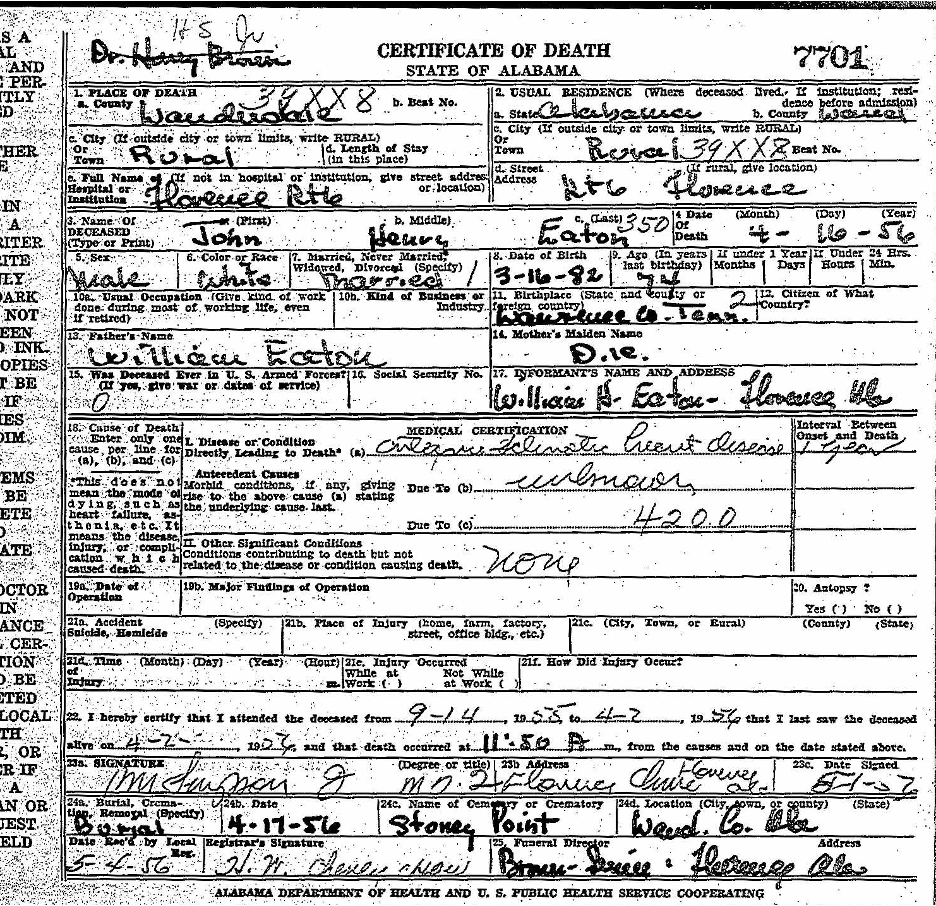 S A
AL
AND
PER-
TLY
D
HER
E
IN
A
RITER
RITE
LY.
DARK
NOT
EEN
INK.
OPIES
T BE
IF
IES
DIM.
EMS
BE
ETE
D
ATE
OCTOR
IN
ANCE
CER-
TION
D BE
ETED
LOCAL
TH
R, OR
ER IF
A
AN OR
QUEST
ELD
H S Jr
Dr. Henry Brown
CERTIFICATE OF DEATH
STATE OF ALABAMA
7701
1. PLACE OF DEATH 39XX8
a. County Lauderdale b. Beat No.
2. USUAL RESIDENCE (Where deceased lived. If institution; resi-
dence before admission)
a. State Alabama b. County
c. City (If outside city or town limits, write RURAL)
Or
Town Rural
d. Length of Stay
(in this place)
c. City (If outside city or town limits, write RURAL)
Or
Town Rural 39XX8 Beat No.
e. Full Name of (If not in hospital or institution, give street address
Hospital or or location)
Institution Florence Rt6
d. Street (If rural, give location)
Address Rt6 Florence
3. Name Of a. (First) b. Middle) c. (Last) 350
DECEASED
(Type or Print) John Henry Eaton
4 Date (Month) (Day) (Year)
Of
Death 4- 16-56
5. Sex
Male
6. Color or Race
White
7. Married, Never Married,
Widowed, Divorced (Specify)
Married 1
8. Date of Birth
3-16-82
9. Age (In years
last birthday)
74
If under 1 Year
Months Days
If Under 24 Hrs.
Hours Min.
10a. Usual Occupation (Give kind of work
done during most of working life, even
if retired)
10b. Kind of Business or
Industry
11. Birthplace (State and county or
foreign country) 2
Lawrence Co. Tenn.
12. Citizen of What
Country?
13. Father's Name
William Eaton
14. Mother's Maiden Name
D.K.
15. Was Deceased Ever in U. S. Armed Forces?
(If yes, give war or dates of service)
0
16. Social Security No.
17. INFORMANT'S NAME AND ADDRESS
William H. Eaton- Florence Ala
18. Cause of Death
Enter only one
cause per line for
(a), (b), and (c)
*This does not
mean the mode of
dying, such as
heart failure, as-
thenia, etc. It
means the disease,
injury, or compli-
cation which
caused death.
MEDICAL CERTIFICATION
I. Disease or Condition
Directly Leading to Death* (a) heart disease
Antecedent Causes
Morbid conditions, if any, giving
rise to the above cause (a) stating
the underlying cause last.
Due To (b) unknown
4200
Due To (c)
II. Other Significant Conditions
Conditions contributing to death but not
related to the disease or condition causing death. None
Interval Between
Onset and Death
1 year
19a. Date of
Operation
19b. Major Findings of Operation
20. Autopsy ?
Yes ( ) No ( )
21a. Accident (Specify)
Suicide, Homicide
21b. Place of Injury (home, farm, factory,
street, office bldg., etc.)
21c. (City, Town, or Rural) (County) (State)
21d. Time (Month) (Day) (Year) (Hour)
of
Injury m.
21e. Injury Occurred
While at Not While
Work ( ) at Work ( )
21f. How Did Injury Occur?
22. I hereby certify that I attended the deceased from 9-14, 1955 to 4-2, 1956 that I last saw the deceased
alive on 4-2-, 1956 and that death occurred at 11:50 P m., from the causes and on the date stated above.
23a. SIGNATURE (Degree or title)
M.D.
23b Address
Florence Clinic Florence Al.
23c. Date Signed
24a. Burial, Crema-
tion, Removal (Specify)
Burial
24b. Date
4-17-56
24c. Name of Cemetery or Crematory
Stoney Point
24d. Location (City, town, or county) (State)
Laud. Co. Ala
Date Rec'd by Local
Reg.
5-4-56
Registrar's Signature
H. W.
25. Funeral Director Address
Brown- Service - Florence Ala
ALABAMA DEPARTMENT OF HEALTH AND U. S. PUBLIC HEALTH SERVICE COOPERATING